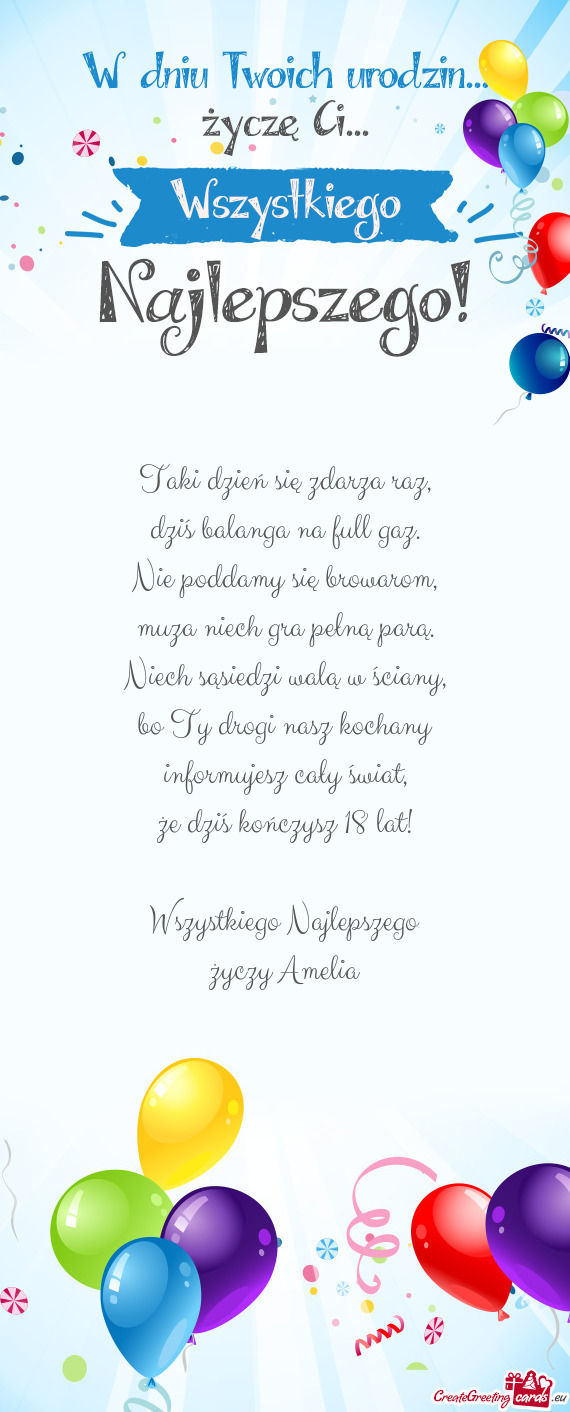 W dniu Twoich urodzin...
życzę Ci...
Wszystkiego
Najlepszego!
Taki dzień się zdarza raz,
dziś balanga na full gaz.
Nie poddamy się browarom,
muza niech gra pełną parą.
Niech sąsiedzi walą w ściany,
bo Ty drogi nasz kochany
informujesz cały świat,
że dziś kończysz 18 lat!
Wszystkiego Najlepszego
życzy Amelia
CreateGreeting cards .eu